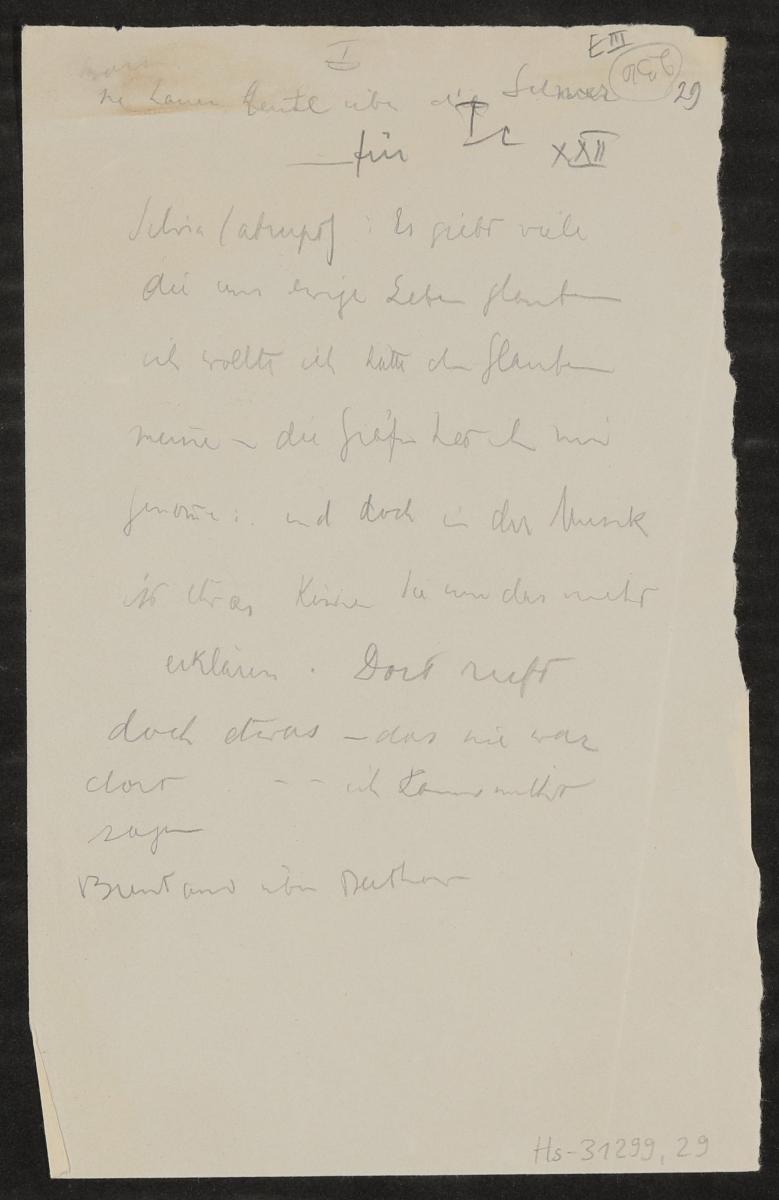 I
E III
29
die
für I c XXII
Silvia (abrupt) : Es giebt viele
die ans ewige Leben glauben
ich wollte ich hätte den Glauben
meine – die Gräfin hat ihn mir
genomen: und doch in der Musik
ist etwas können Sie mir das nicht
erklären. Dort ruft
doch etwas – das nie war
dort – – ich kanns nicht
sagen
Brentano über Beethoven
Hs-31299,29